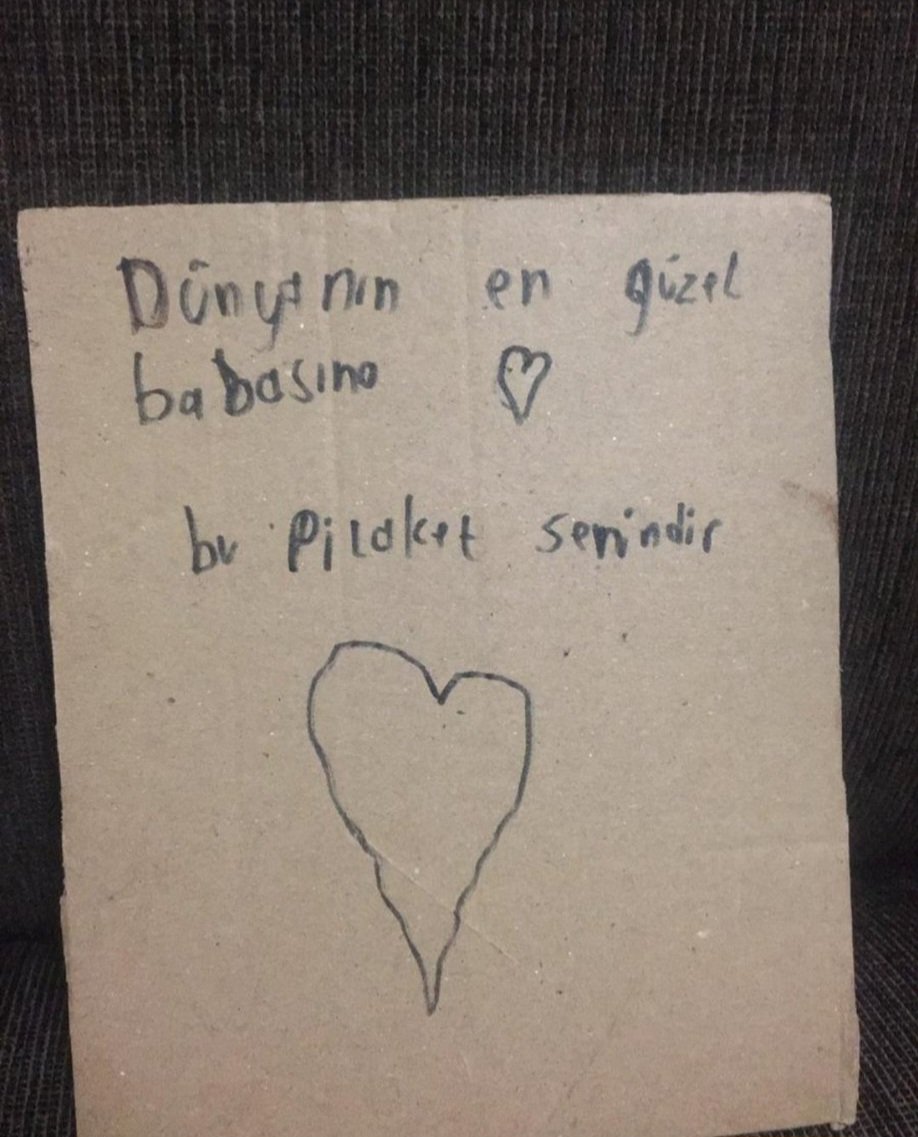 Dünyanın en güzel
babasına
bu Pilaket senindir